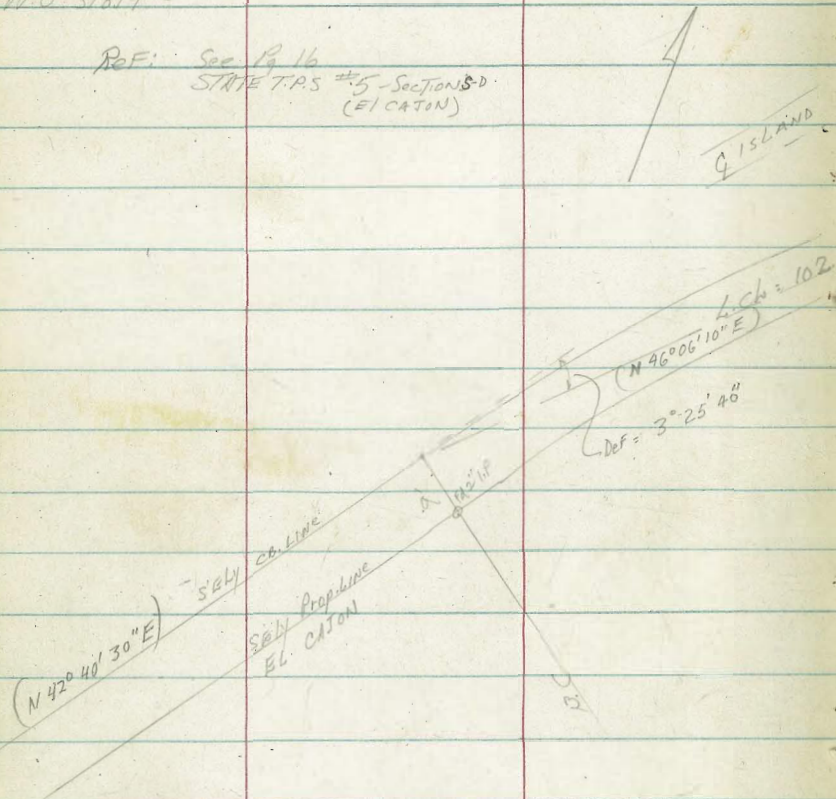 Ref: See Pg 16
STATE T.P.S #5 - SECTIONS-D
(El CAJON)
℄ ISLAND
L.Ch = 102
(N 46°06'10" E)
Def = 3°-25'40"
9'
2" I.P
SELY CB. LINE
SELY Prop. LINE
EL. CAJON
(N 42° 40' 30" E)
B.C.